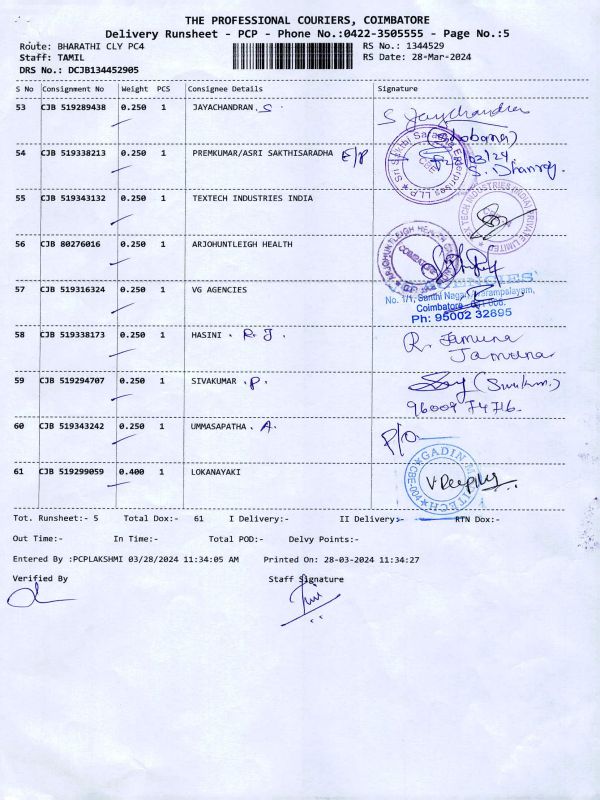 THE PROFESSIONAL COURIERS, COIMBATORE
Delivery Runsheet - PCP - Phone No.:0422-3505555 - Page No.:5
Route: BHARATHI CLY PC4 RS No.: 1344529
Staff: TAMIL RS Date: 28-Mar-2024
DRS No.: DCJB134452905
S No Consignment No Weight PCS Consignee Details Signature
53 CJB 519289438 0.250 1 JAYACHANDRAN. S. S Jayachandran
(Shobana)
54 CJB 519338213 0.250 1 PREMKUMAR/ASRI SAKTHISARADHA E/P
55 CJB 519343132 0.250 1 TEXTECH INDUSTRIES INDIA
TEX TECH INDUSTRIES (INDIA) PRIVATE LIMITED
56 CJB 80276016 0.250 1 ARJOHUNTLEIGH HEALTH
57 CJB 519316324 0.250 1 VG AGENCIES
No. 1/1, Santhi Nagar,
Coimbatore
Ph: 95002 32695
58 CJB 519338173 0.250 1 HASINI . R. J. R. Jamuna
Jamuna
59 CJB 519294707 0.250 1 SIVAKUMAR .P.
96009 74716.
60 CJB 519343242 0.250 1 UMMASAPATHA . A. P/O
61 CJB 519299059 0.400 1 LOKANAYAKI
V Deepika
Tot. Runsheet:- 5 Total Dox:- 61 I Delivery:- II Delivery:- RTN Dox:-
Out Time:- In Time:- Total POD:- Delvy Points:-
Entered By :PCPLAKSHMI 03/28/2024 11:34:05 AM Printed On: 28-03-2024 11:34:27
Verified By Staff Signature